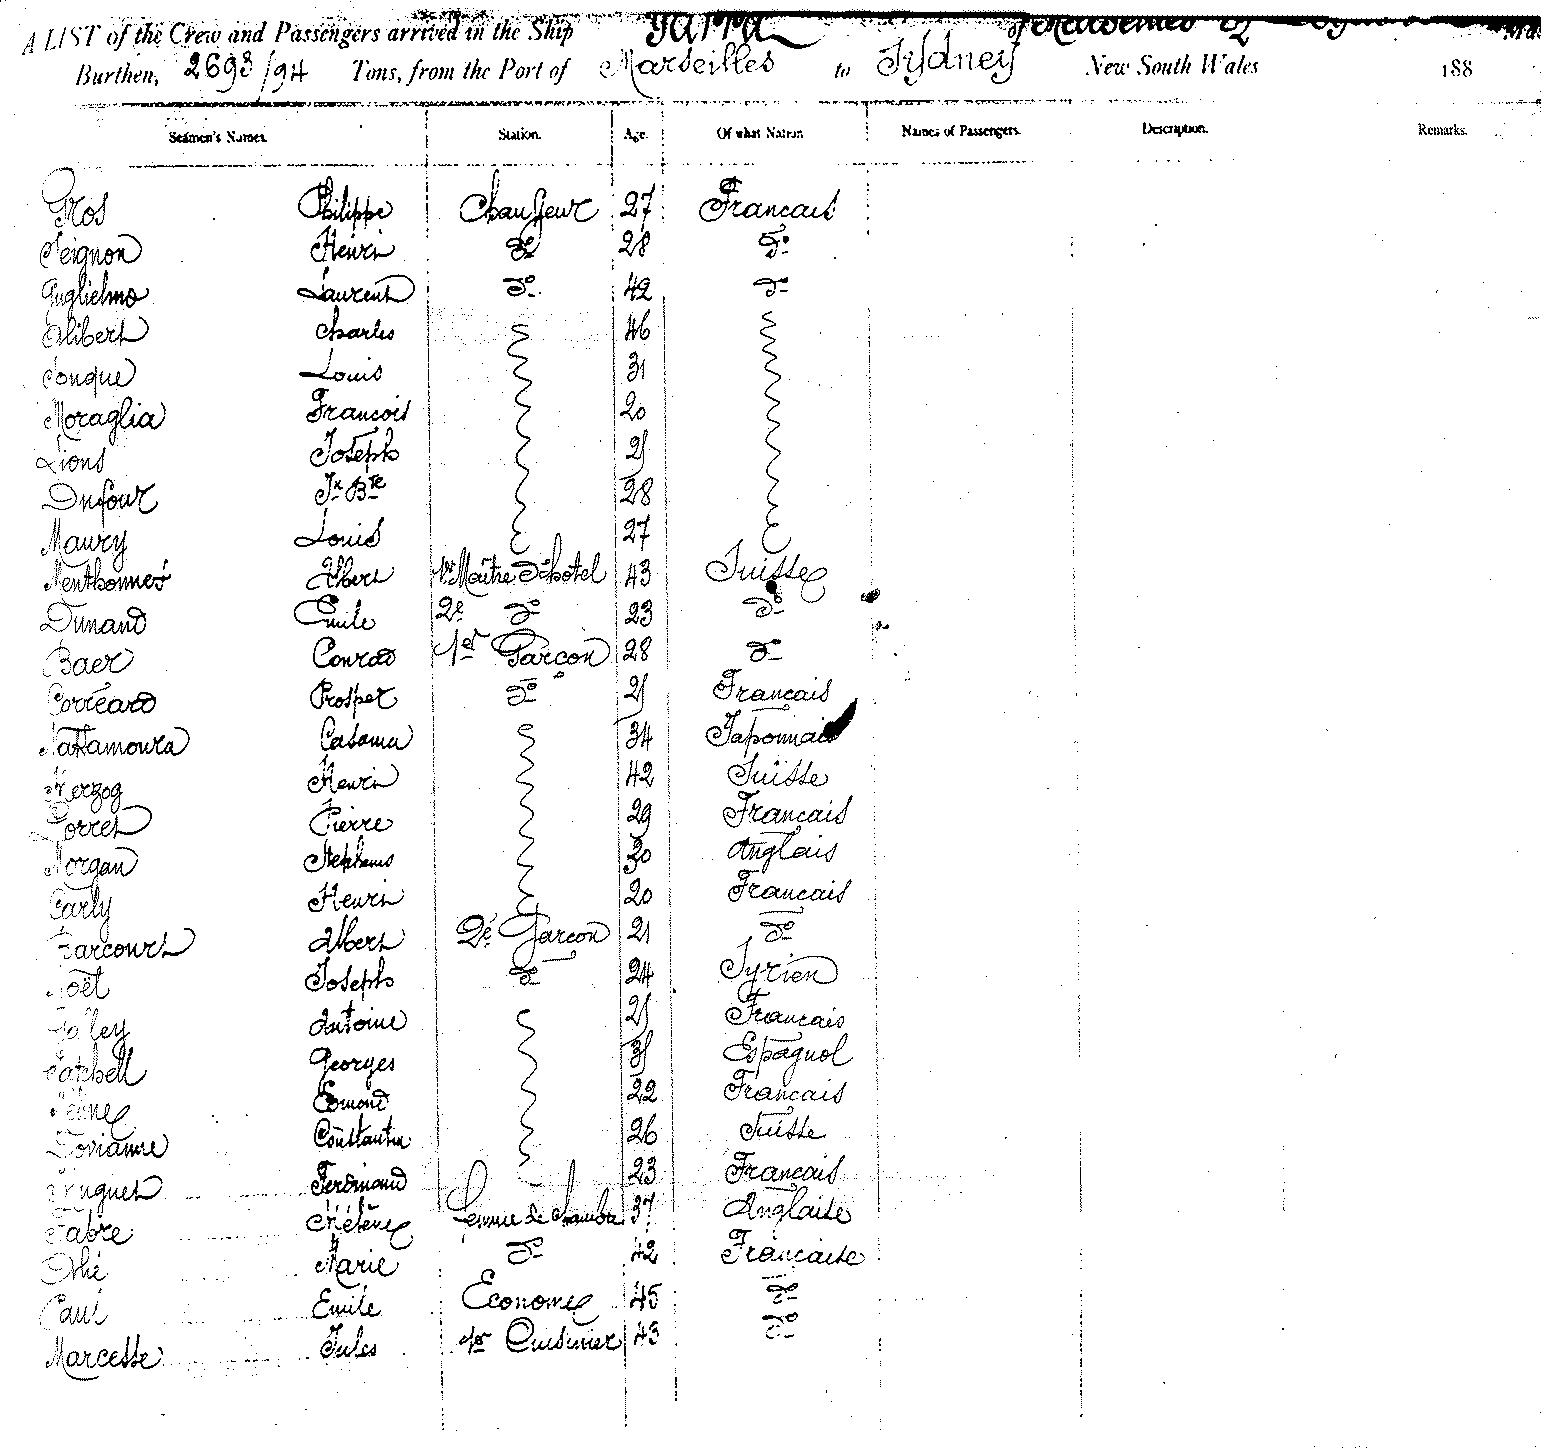 A LIST of the Crew and Passengers arrived in the Ship Yarra of
Burthen, 2693/94 Tons, from the Port of Marseilles to Sydney New South Wales 188
Seamen's Names. Station. Age. Of what Nation Names of Passengers. Description. Remarks.
Gros Philippe Chauffeur 27 Francais
Peignon Henri do 28 do
Guglielmo Laurent do 42 do
Alibert Charles 46
Conque Louis 31
Moraglia Francois 20
Lions Joseph 25
Dufour Jn Bte 28
Maury Louis 27
Albert 1er Maître d'hotel 43 Suisse
Dunand Emile 2e do 23 do
Baer Conrad 1er Garçon 28 do
Corréard Prosper do 25 Francais
Casama 34 Japonnais
Herzog Henri 42 Suisse
Porret Pierre 29 Francais
Morgan Stephens 30 Anglais
Carly Henri 20 Francais
Harcourt Albert 2e Garcon 21 do
Joseph do 24 Syrien
Antoine 25 Francais
Georges 35 Espagnol
Edmond 22 Francais
Constantin 26 Suisse
Huguet Ferdinand 23 Francais
Fabre Hélène Femme de chambre 37 Anglaise
Marie do 42 Francaise
Paul Emile Econome 45 do
Marcesse Jules 1er Cuisinier 43 do